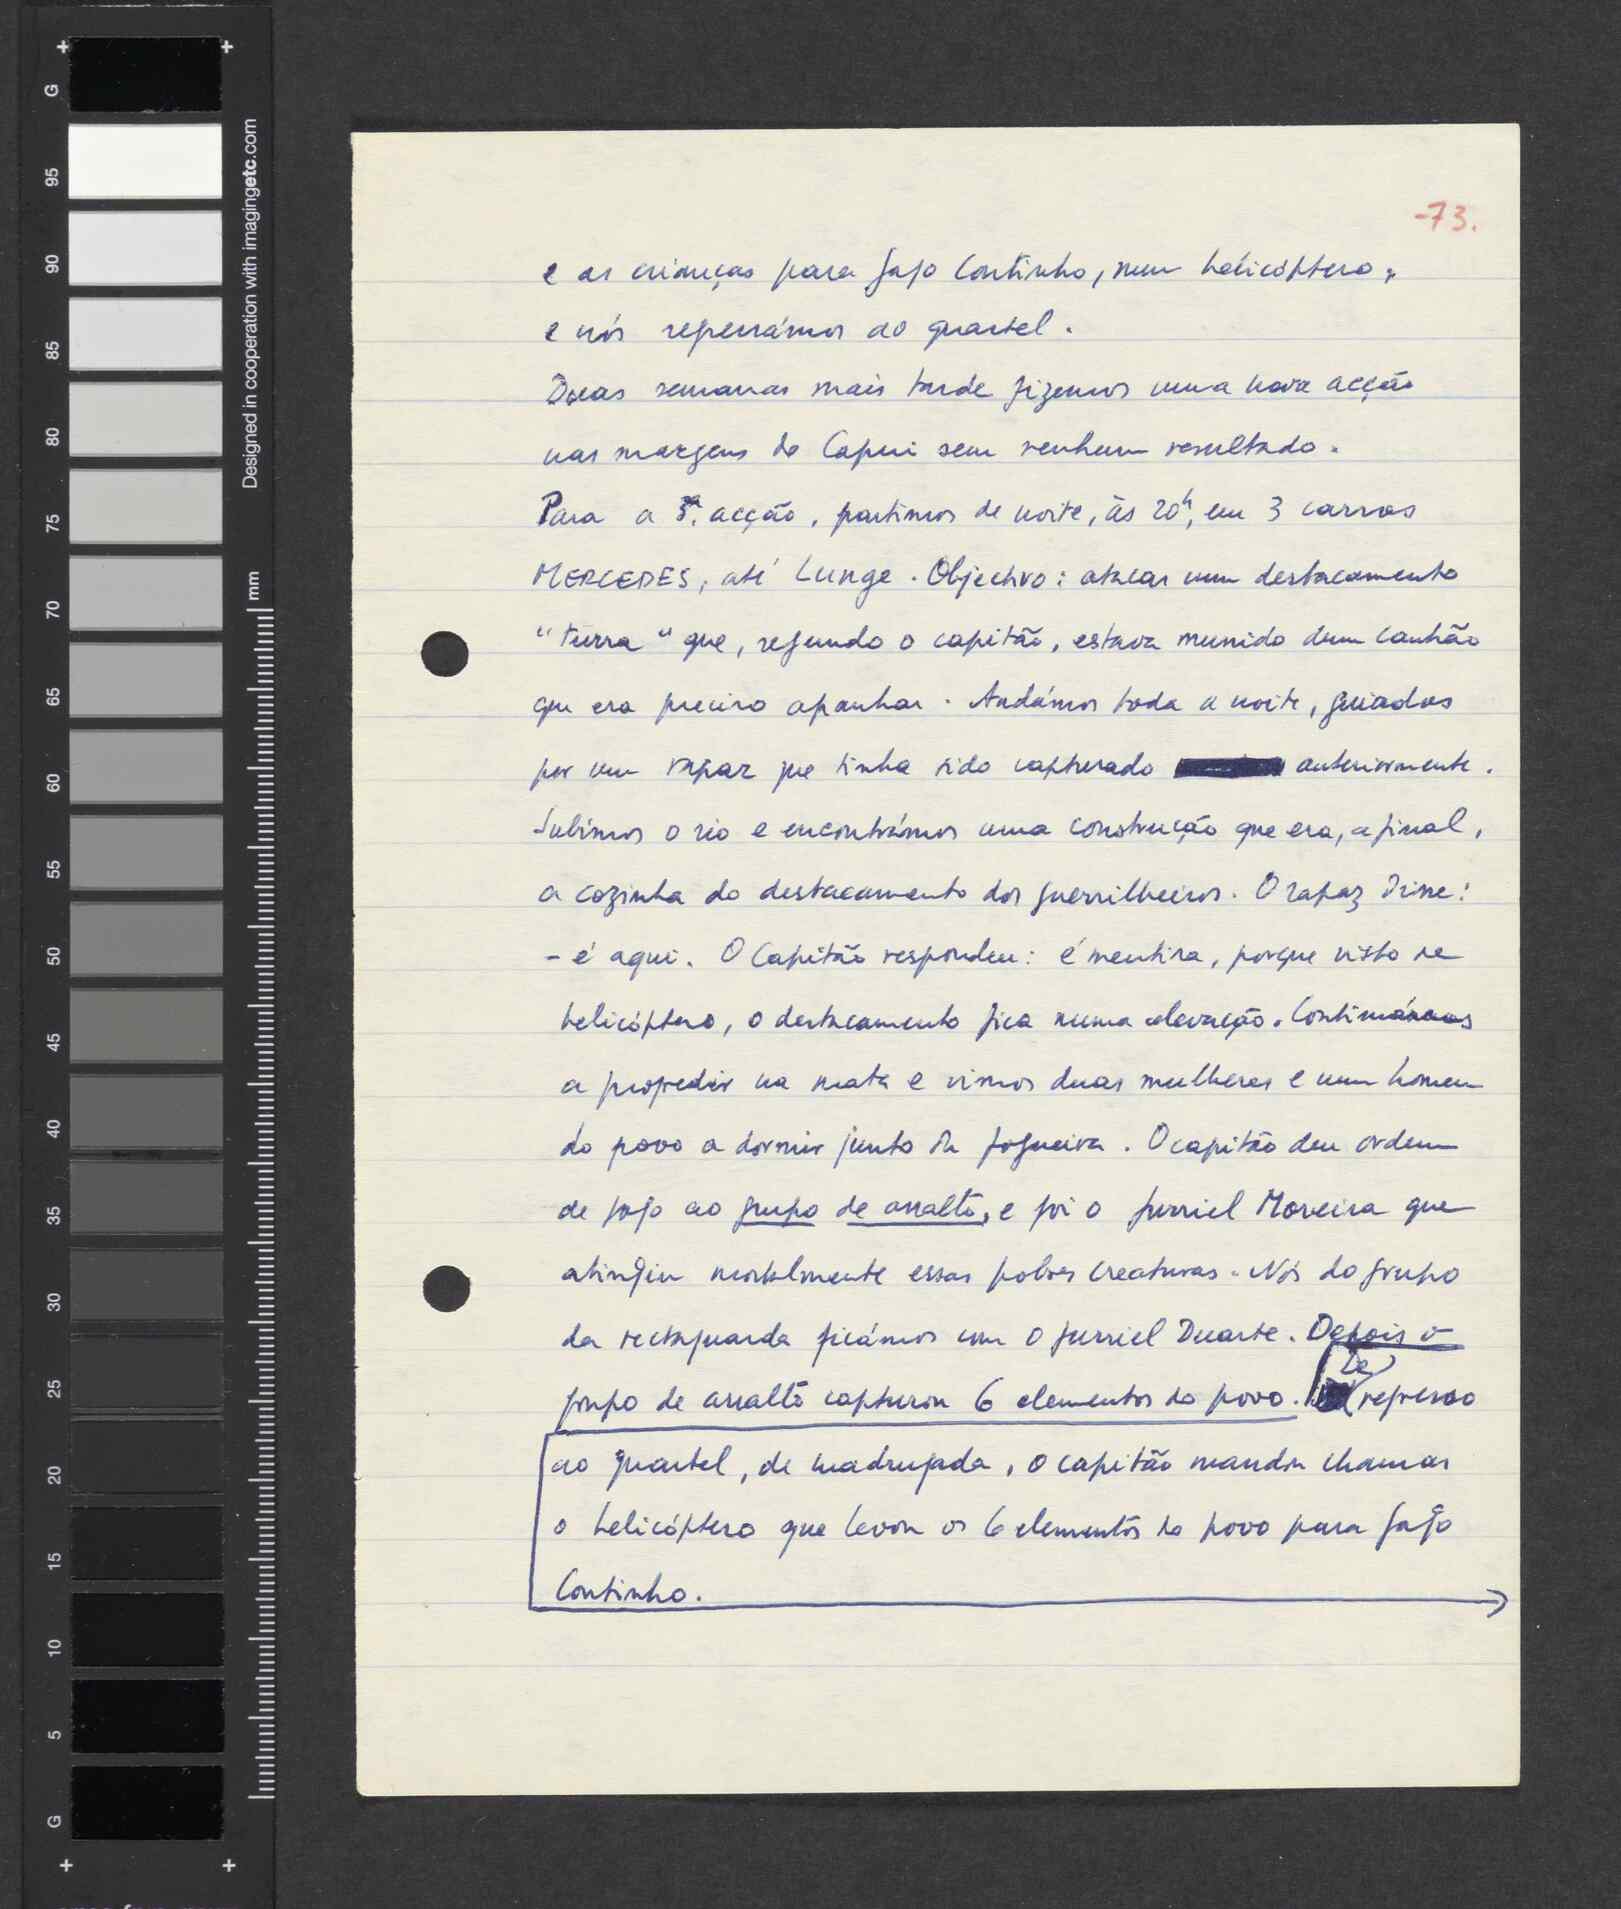 -73.
e as crianças para Gago Coutinho, num helicóptero,
e nós regressámos ao quartel.
Duas semanas mais tarde fizemos uma nova acção
nas margens do Capui sem nenhum resultado.
Para a 3ª. acção, partimos de noite, às 20h, em 3 carros
MERCEDES, até Lunge. Objectivo: atacar um destacamento
"turra" que, segundo o capitão, estava munido dum canhão
que era preciso apanhar. Andámos toda a noite, guiados
por um rapaz que tinha sido capturado anteriormente.
Subimos o rio e encontrámos uma construção que era, afinal,
a cozinha do destacamento dos guerrilheiros. O rapaz disse:
- é aqui. O Capitão respondeu: é mentira, porque visto de
helicóptero, o destacamento fica numa elevação. Continuámos
a progredir na mata e vimos duas mulheres e um homem
do povo a dormir junto da fogueira. O capitão deu ordem
de fogo ao grupo de assalto, e foi o furriel Moreira que
atingiu mortalmente essas pobres creaturas. Nós do grupo
da rectaguarda ficámos com o furriel Duarte. Depois o
grupo de assalto capturou 6 elementos do povo. De regresso
ao quartel, de madrugada, o capitão mandou chamar
o helicóptero que levou os 6 elementos do povo para Gago
Coutinho.
Designed in cooperation with imagingetc.com
mm
G
95
90
85
80
75
70
65
60
55
50
45
40
35
30
25
20
15
10
5
G